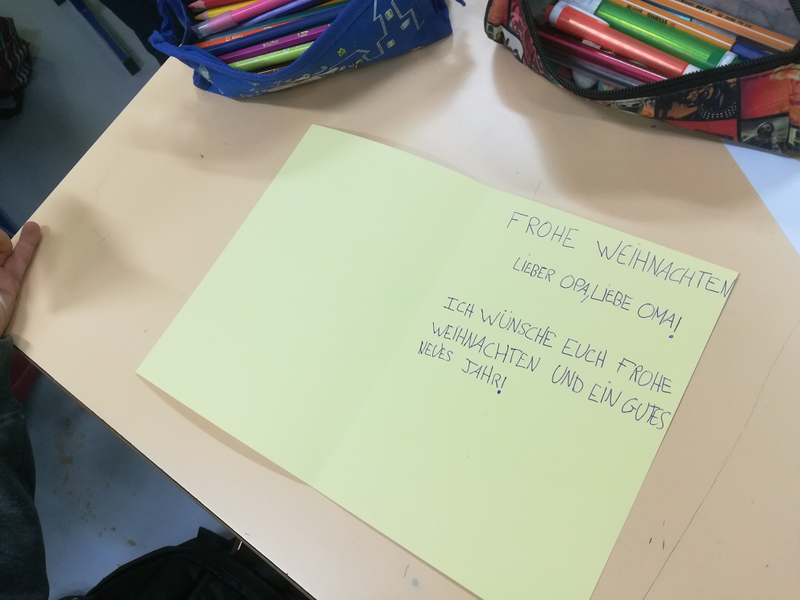 FROHE WEIHNACHTEN
LIEBER OPA, LIEBE OMA!
ICH WÜNSCHE EUCH FROHE
WEIHNACHTEN UND EIN GUTES
NEUES JAHR!